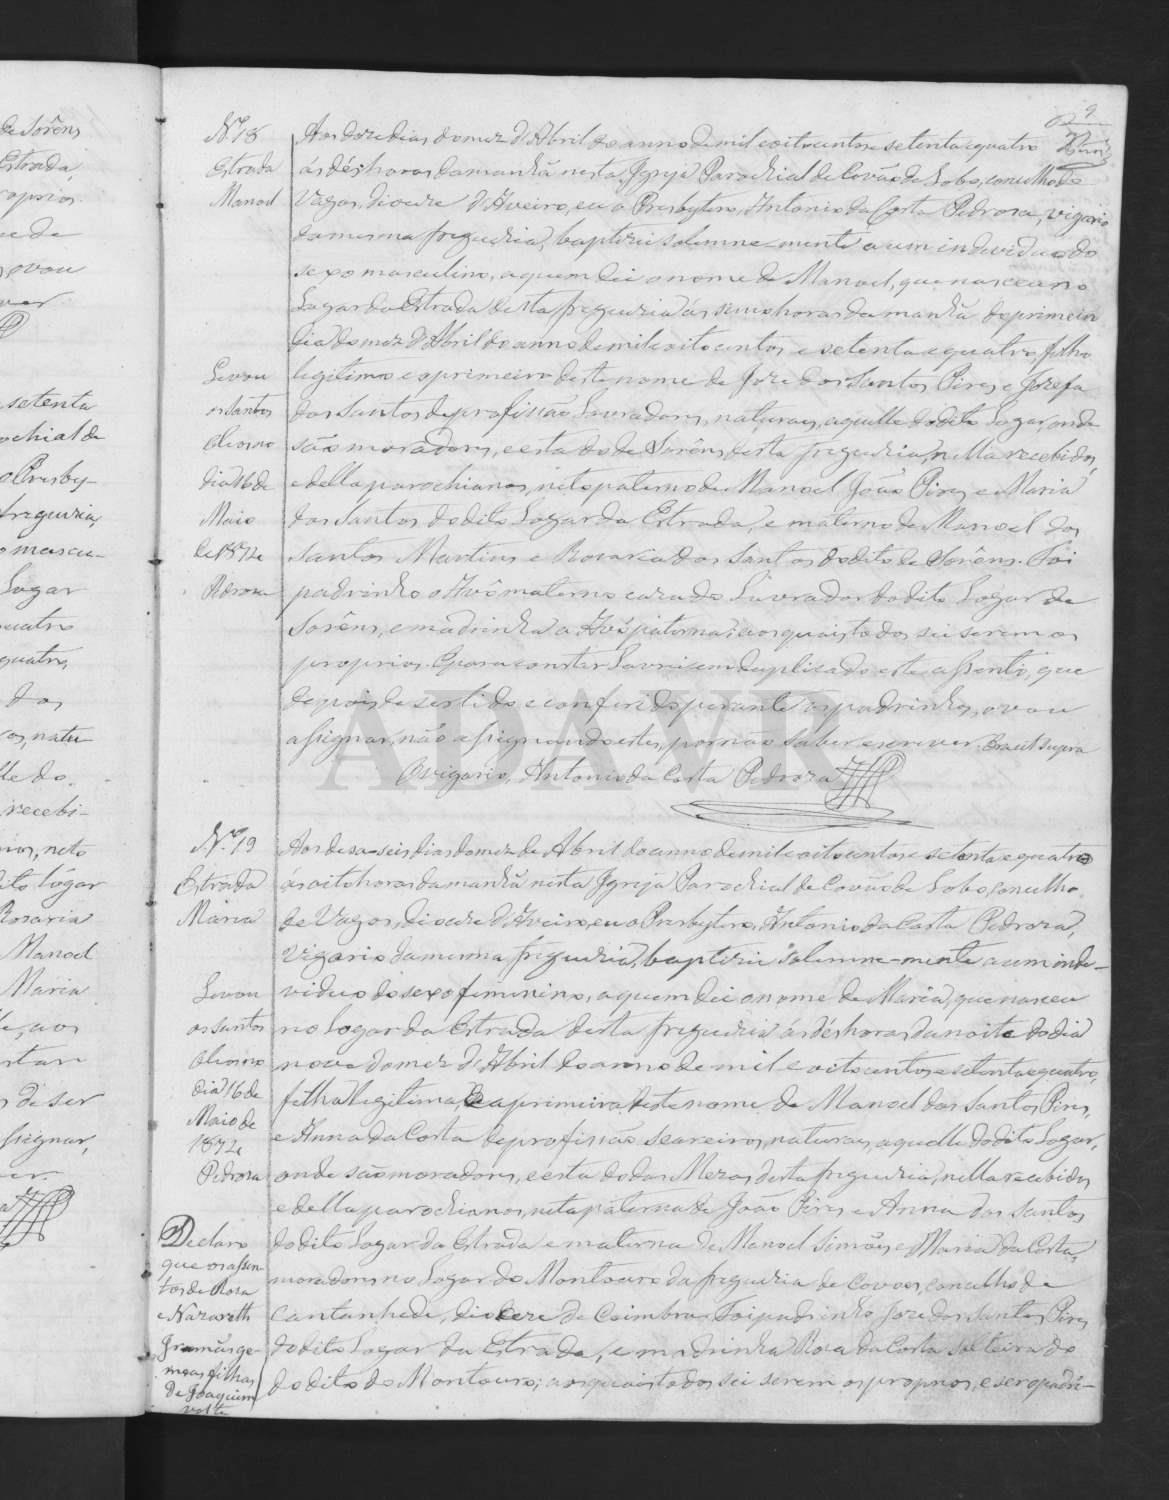 9
Nº 18
Estrada
Manoel
Aos doze dias do mez d'Abril do anno de mil e oito centos e setenta e quatro
ás dés horas da manhã nesta Igreja Parochial de Covão do Lobo, concelho de
Vagos, diocese d'Aveiro, eu o Presbytero, Antonio da Costa Pedroza, vigario
da mesma freguezia, baptizei solemne-mente a um individuo do
sexo masculino, a quem dei o nome de Manoel, que nasceu no
Lugar da Estrada desta freguezia ás sinco horas da manhã do primeiro
dia do mez d'Abril do anno de mil e oito centos e setenta e quatro, filho
legitimo e o primeiro deste nome de Joze dos Santos Pires e Jozefa
dos Santos de profissão Lavradores, naturaes, aquelle do dito Lugar, onde
são moradores, e esta do de Sorêns, desta freguezia, n'ella recebidos,
e della parochianos, neto paterno de Manoel João Pires e Maria
dos Santos do dito Logar da Estrada, e materno de Manoel dos
Santos Martins e Rozaria dos Santos do dito de Sorêns. Foi
padrinho o Avô materno cazado Lavrador do dito Logar de
Sorêns, e madrinha a Avó paterna; aos quais todos sei serem os
proprios. E para constar lavrei em duplicado este assento, que
depois de ser lido e conferido perante os padrinhos, o vou
assignar, não assignando estes, por não saber escrever. Era ut supra
O vigario, Antonio da Costa Pedroza
Levou
os santos
oleos no
dia 16 de
Maio
de 1874
Pedroza
Nº 19
Estrada
Maria
Aos deza-seis dias do mez de Abril do anno de mil e oito centos e setenta e quatro
ás oito horas da manhã nesta Igreja Parochial de Covão do Lobo, concelho
de Vagos, diocese d'Aveiro, eu o Presbytero, Antonio da Costa Pedroza,
Vigario da mesma freguezia, baptizei solemne-mente a um indi-
viduo do sexo feminino, a quem dei o nome de Maria, que nasceu
no Logar da Estrada desta freguezia ás dés horas da noite do dia
nove do mez d'Abril do anno de mil e oito centos e setenta e quatro,
filha legitima, e a primeira deste nome de Manoel dos Santos Pires,
e Anna da Costa de profissão seareiros, naturaes, aquelle do dito Logar,
onde são moradores, e esta do das Mezas desta freguezia, nella recebidos
e della parochianos, neta paterna de João Pires e Anna dos Santos
do dito Logar da Estrada e materna de Manoel Simões e Maria da Costa,
moradores no Logar do Montouro da freguezia de Covões, concelho de
Cantanhede, diocese de Coimbra. Foi padrinho Joze dos Santos Pires
do dito Logar da Estrada, e madrinha Roza da Costa solteira do
do dito do Montouro; aos quais todos sei serem os proprios, e ser o padri-
Levou
os santos
oleos no
dia 16 de
Maio de
1874
Pedroza
Declaro
que os assen-
tos de Roza
e Nazareth
Irmãs ge-
meas filhas
de Joaquim
volte
ADAVR